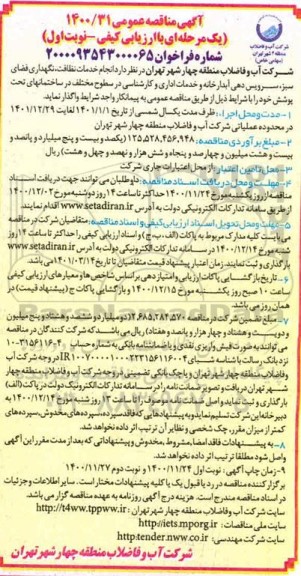 آگهی مناقصه عمومی ۱۴۰۰/۳۱
(یک مرحله ای با ارزیابی کیفی - نوبت اول)
شماره فراخوان ۲۰۰۰۰۹۳۵۴۳۰۰۰۰۶۵
شرکت آب و فاضلاب
منطقه ۴ شهر تهران
(سهامی خاص)
شرکت آب و فاضلاب منطقه چهار شهر تهران در نظر دارد انجام خدمات نظافت، نگهداری فضای
سبز، سرویس دهی آبدارخانه و خدمات اداری و کارشناسی در سطوح مختلف در ساختمانهای تحت
پوشش خود را با شرایط ذیل از طریق مناقصه عمومی به پیمانکار واجد شرایط واگذار نماید.
۱- مدت و محل اجرا: ظرف مدت یکسال شمسی از تاریخ ۱۴۰۱/۱/۱ لغایت ۱۴۰۱/۱۲/۲۹
در محدوده عملیاتی شرکت آب و فاضلاب منطقه چهار شهر تهران
۲- مبلغ برآوردی مناقصه: ۱۲۵,۵۲۸,۴۵۶,۹۴۸ (یکصد و بیست و پنج میلیارد و پانصد و
بیست و هشت میلیون و چهارصد و پنجاه و شش هزار و نهصد و چهل و هشت) ریال
۳- محل تامین اعتبار: از محل اعتبارات جاری شرکت
۴- مهلت و محل دریافت اسناد مناقصه: داوطلبان می توانند جهت دریافت اسناد
مناقصه از روز یکشنبه مورخ ۱۴۰۰/۱۱/۲۴ حداکثر تا ساعت ۱۴ روز دوشنبه مورخ ۱۴۰۰/۱۲/۰۲
از طریق سامانه تدارکات الکترونیکی دولت به آدرس www.setadiran.ir اقدام نمایند.
۵- مهلت و محل تحویل اسناد ارزیابی کیفی و اسناد مناقصه: متقاضیان شرکت در مناقصه
می بایست کلیه مدارک مربوط به پاکات (الف، ب، ج) و اسناد ارزیابی کیفی را حداکثر تا ساعت ۱۴ روز
شنبه مورخ ۱۴۰۰/۱۲/۱۴ در سامانه تدارکات الکترونیکی دولت به آدرس www.setadiran.ir
بارگذاری و ثبت نمایند. زمان اعتبار پیشنهاد قیمت متقاضیان تا تاریخ ۱۴۰۱/۰۳/۱۴ می باشد.
۶- تاریخ بازگشایی پاکات ارزیابی و امتیازدهی بر اساس شاخص ها و معیارهای ارزیابی کیفی
ساعت ۱۰ صبح روز یکشنبه مورخ ۱۴۰۰/۱۲/۱۵ و بازگشایی پاکات ج (پیشنهاد قیمت) در
همان روز می باشد.
شرکت در مناقصه: ۲,۶۸۵,۲۸۴,۵۷۰ (دو میلیارد و ششصد و هشتاد و پنج میلیون
و دویست و هشتاد و چهار هزار و پانصد و هفتاد) ریال می باشد که شرکت کنندگان در مناقصه
می توانند به صورت فیش واریزی نقدی و یا ضمانتنامه بانکی به شماره حساب
در وجه شرکت آب
و فاضلاب منطقه چهار شهر تهران و یا چک بانکی تضمینی در وجه شرکت آب و فاضلاب منطقه چهار
شهر تهران دریافت و تصویر ضمانت نامه را در سامانه تدارکات الکترونیک دولت در پاکت (الف)
دبیرخانه این شرکت تسلیم نمایند و به پیشنهادهایی که فاقد سپرده، سپرده های مخدوش، سپرده های
کمتر از میزان مقرر، چک شخصی و نظایر آن ترتیب اثر داده نخواهد شد.
۸- به پیشنهادات فاقد امضا، مشروط، مخدوش و پیشنهاداتی که بعد از مدت مقرر این آگهی
وصول شود مطلقا ترتیب اثر داده نخواهد شد.
۹- زمان چاپ آگهی: نوبت اول ۱۴۰۰/۱۱/۲۴ و نوبت دوم ۱۴۰۰/۱۱/۲۷
برگزار کننده مناقصه در رد یا قبول یک یا کلیه پیشنهادات مختار است. سایر اطلاعات و جزئیات
در اسناد مناقصه مندرج است. هزینه درج آگهی روزنامه به عهده مناقصه گزار می باشد.
سایت شرکت آب و فاضلاب منطقه چهار شهر تهران: http://t4ww.tppww.ir
سایت ملی مناقصات: http://iets.mporg.ir
سایت شرکت مهندسی: http:tender.nww.co.ir
شرکت آب و فاضلاب منطقه چهار شهر تهران